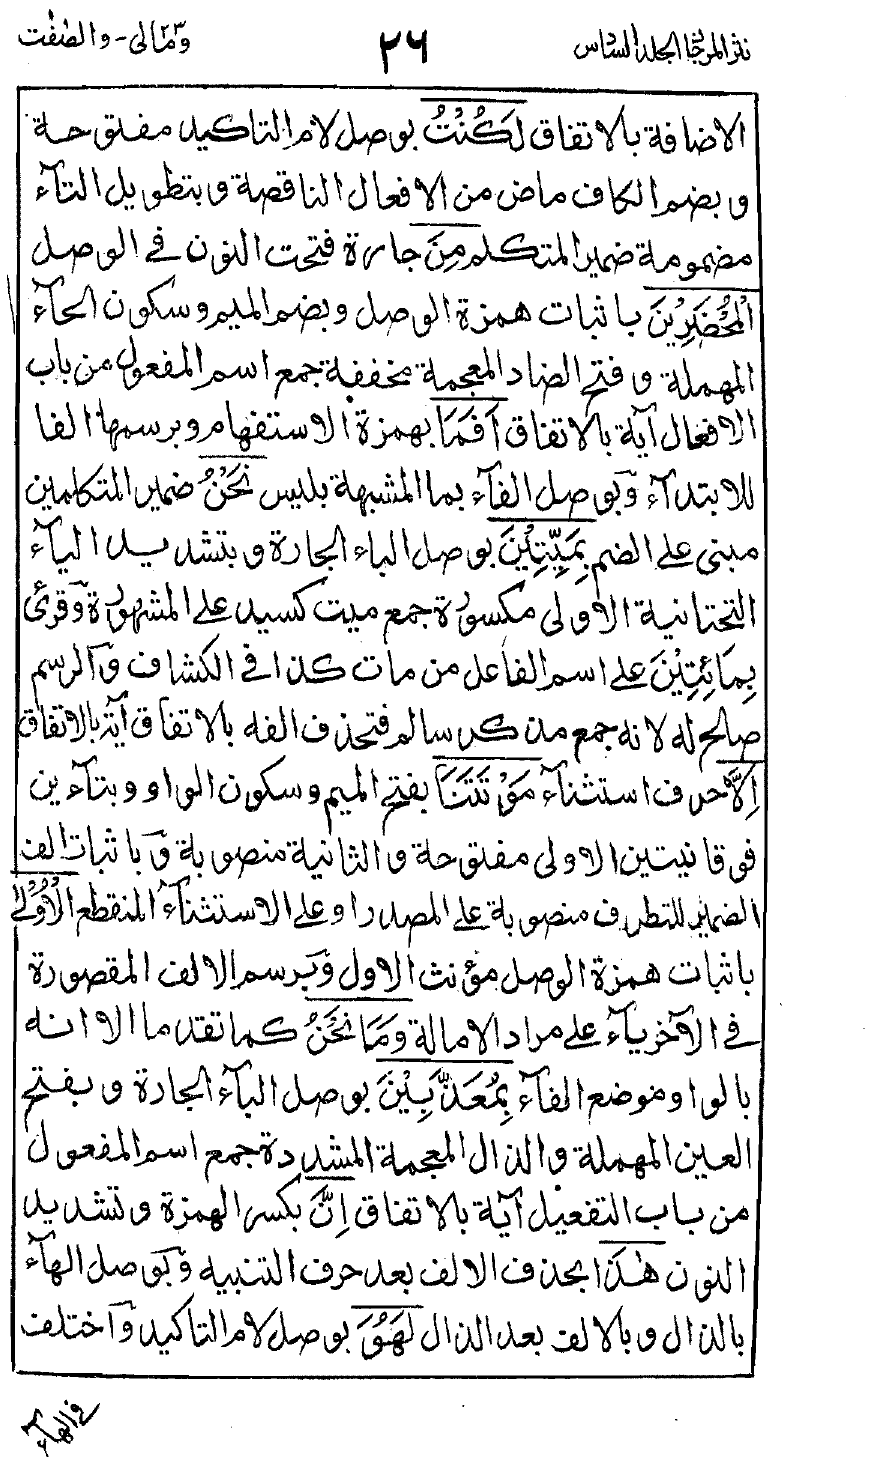 نثر المرجان الجلد السادس ٢٦ ومالی ٢٣ - والصّٰفّٰت
الاضافة بالاتفاق لَكُنْتُ بوصل لام التاكيد مفتوحة
و بضم الكاف ماض من الافعال الناقصة و بتطويل التآء
مضمومة ضمير المتكلم مِنَ جارة فتحت النون فی الوصل
الْمُحْضَرِيْنَ باثبات همزة الوصل و بضم الميم و سكون الحآء
المهملة و فتح الضاد المعجمة مخففة جمع اسم المفعول من باب
الافعال آية بالاتفاق اَفَمَا بهمزة الاستفهام و برسمها الفا
للابتدآء وَ بوصل الفآء بما المشبهة بليس نَحْنُ ضمير المتكلمين
مبنی علی الضم بِمَيِّتِيْنَ بوصل الباء الجارة و بتشديد اليآء
التحتانية الاولی مكسورة جمع ميت كسيد علی المشهورة وَ قرئ
بِمَائِتِيْنَ علی اسم الفاعل من مات كذا فی الكشاف وَ الرسم
صالح له لانه جمع مذكر سالم فتحذف الفه بالاتفاق آية بالاتفاق
اِلَّا حرف استثنآء مَوْتَتَنَا بفتح الميم و سكون الواو و بتآءين
فوقانيتين الاولی مفتوحة و الثانية منصوبة وَ باثبات الف
الضمير للتطرف منصوبة علی المصدر او علی الاستثنآء المنقطع الْاُوْلٰی
باثبات همزة الوصل مؤنث الاول وَ برسم الالف المقصورة
فی الآخر يآء علی مراد الامالة وَمَا نَحْنُ كما تقدم الا انه
بالواو موضع الفآء بِمُعَذَّبِيْنَ بوصل البآء الجارة و بفتح
العين المهملة و الذال المعجمة المشددة جمع اسم المفعول
من باب التفعيل آية بالاتفاق اِنَّ بكسر الهمزة و تشديد
النون هٰذَا بحذف الالف بعد حرف التنبيه وَ بوصل الهآء
بالذال و بالالف بعد الذال لَهُوَ بوصل لام التاكيد وَ اختلف
فی الهآء